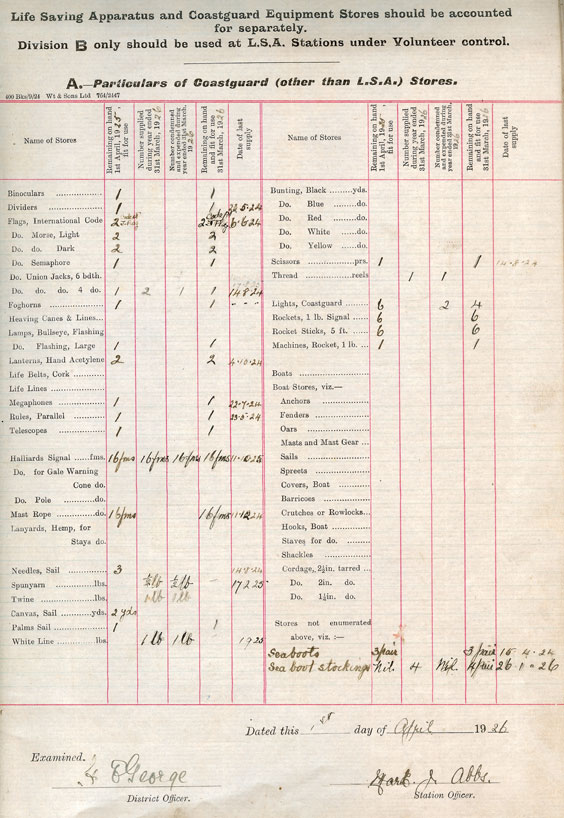 Life Saving Apparatus and Coastguard Equipment Stores should be accounted
for separately.
Division B only should be used at L.S.A. Stations under Volunteer control.
A.—Particulars of Coastguard (other than L.S.A.) Stores.
400 Bks/9/24 Wt & Sons Ltd 764/2447
Name of Stores
Remaining on hand 1st April, 1925, fit for use
Number supplied during year ended 31st March, 1926
Number condemned and expended during year ended 31st March, 1926
Remaining on hand and fit for use 31st March, 1926
Date of last supply
Binoculars 1 1
Dividers 1 1 22.5.24
Flags, International Code 2 2 6.6.24
Do. Morse, Light 2 2
Do. do. Dark 2 2
Do. Semaphore 1 1
Do. Union Jacks, 6 bdth.
Do. do. do. 4 do. 1 2 1 1 14.8.24
Foghorns 1 1
Heaving Canes & Lines...
Lamps, Bullseye, Flashing
Do. Flashing, Large 1 1
Lanterns, Hand Acetylene 2 2 4.10.24
Life Belts, Cork
Life Lines
Megaphones 1 1 22.7.24
Rules, Parallel 1 1 23.5.24
Telescopes 1 1
Halliards Signal fms. 16 fms 16 fms 16 fms 16 fms 11.10.25
Do. for Gale Warning
Cone do.
Do. Pole do.
Mast Rope do. 16 fms 16 fms 11.12.24
Lanyards, Hemp, for
Stays do.
Needles, Sail 3 14.8.24
Spunyarn lbs. ½ lb ½ lb – 17.2.25
Twine lbs. 1 lb 1 lb
Canvas, Sail yds. 2 yds
Palms Sail 1 1
White Line lbs. 1 lb 1 lb 1925
Name of Stores
Remaining on hand 1st April, 1925, fit for use
Number supplied during year ended 31st March, 1926
Number condemned and expended during year ended 31st March, 1926
Remaining on hand and fit for use 31st March, 1926
Date of last supply
Bunting, Black yds.
Do. Blue do.
Do. Red do.
Do. White do.
Do. Yellow do.
Scissors prs. 1 1 14.8.24
Thread reels 1 1
Lights, Coastguard 6 2 4
Rockets, 1 lb. Signal 6 6
Rocket Sticks, 5 ft. 6 6
Machines, Rocket, 1 lb. ... 1 1
Boats
Boat Stores, viz.—
Anchors
Fenders
Oars
Masts and Mast Gear ...
Sails
Spreets
Covers, Boat
Barricoes
Crutches or Rowlocks...
Hooks, Boat
Staves for do.
Shackles
Cordage, 2½in. tarred ...
Do. 2in. do.
Do. 1½in. do.
Stores not enumerated
above, viz. :—
Seaboots 3 pair 3 pair 15.4.24
Sea boot stockings Nil. 4 Nil. 4 pair 26.1.26
Dated this 1st day of April 1926
Examined.
George
District Officer.
J. Abbs.
Station Officer.